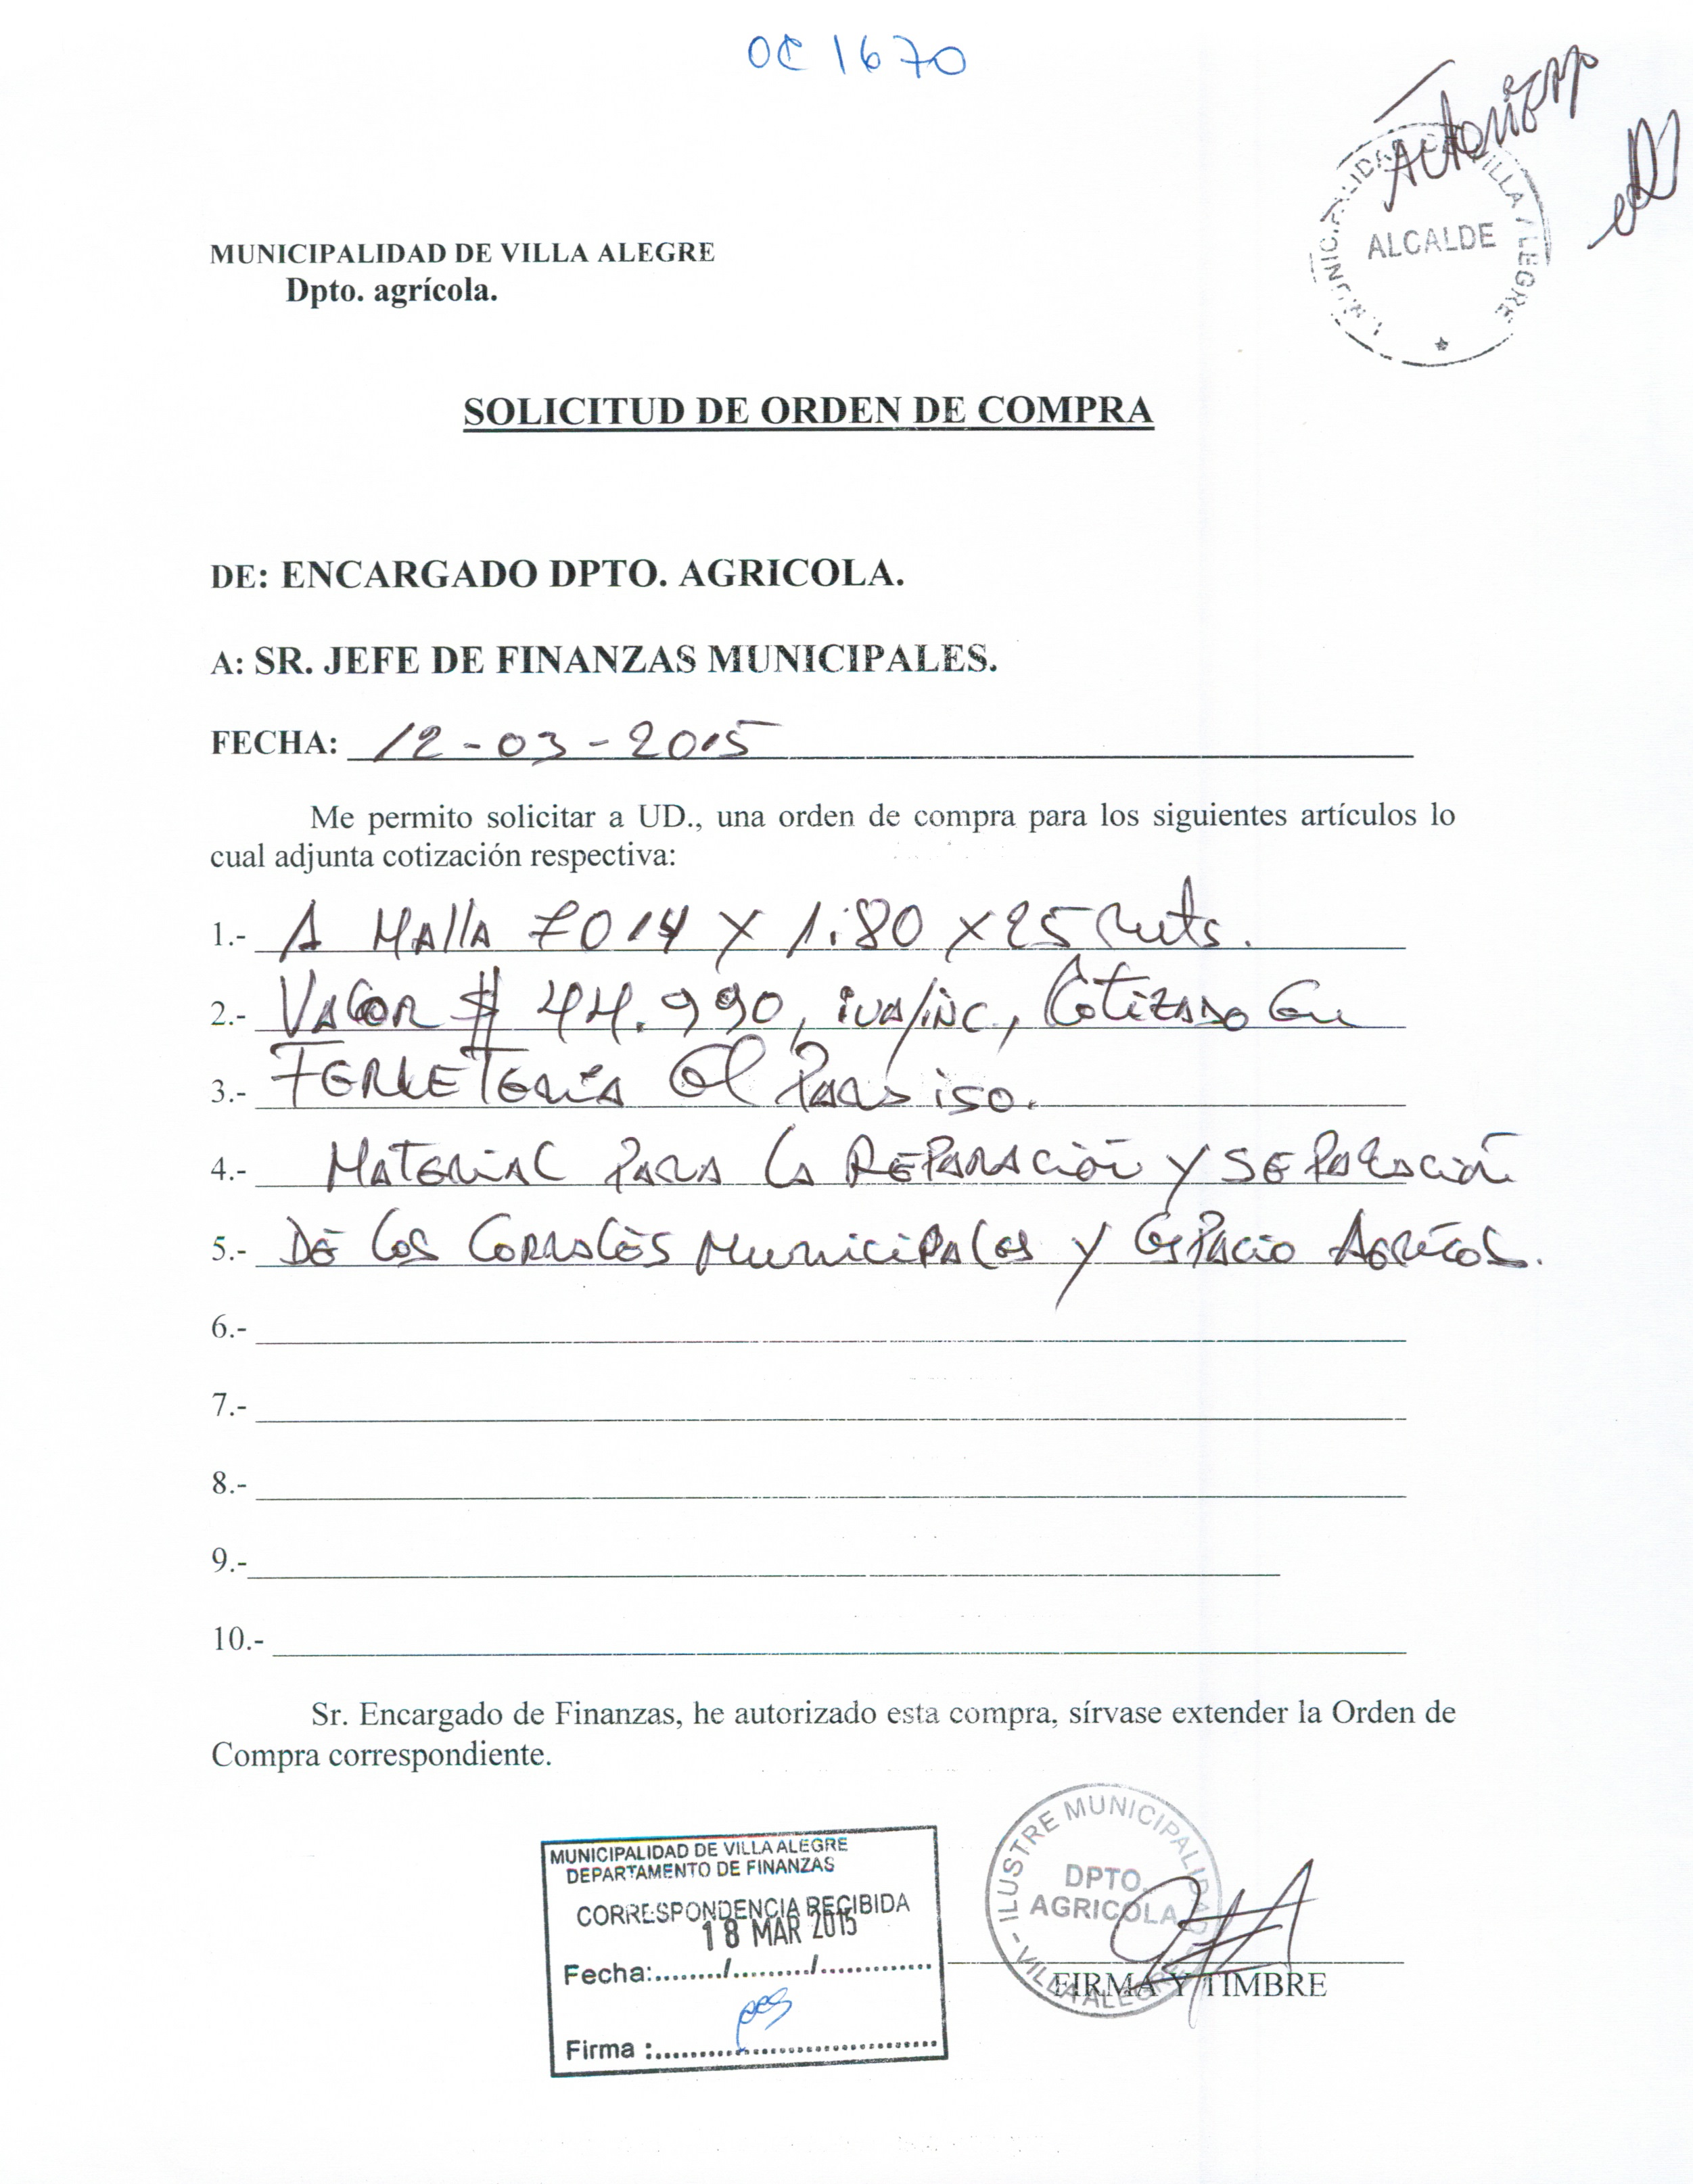 OC 1670
Autorizado
I. MUNICIPALIDAD DE VILLA ALEGRE
ALCALDE
MUNICIPALIDAD DE VILLA ALEGRE
Dpto. agrícola.
SOLICITUD DE ORDEN DE COMPRA
DE: ENCARGADO DPTO. AGRICOLA.
A: SR. JEFE DE FINANZAS MUNICIPALES.
FECHA: 12-03-2015
Me permito solicitar a UD., una orden de compra para los siguientes artículos lo
cual adjunta cotización respectiva:
1.- 1 Malla 7014 x 1.80 x 25 mts.
2.- Valor $ 44.990, iva/inc., Cotizado en
3.- Ferretería El Paraiso.
4.- Material para la Reparación y separación
5.- De los Corrales Municipales y espacio Agrícol.
6.-
7.-
8.-
9.-
10.-
Sr. Encargado de Finanzas, he autorizado esta compra, sírvase extender la Orden de
Compra correspondiente.
MUNICIPALIDAD DE VILLA ALEGRE
DEPARTAMENTO DE FINANZAS
CORRESPONDENCIA RECIBIDA
18 MAR 2015
Fecha:......../........./..............
Firma :....................................
ILUSTRE MUNICIPALIDAD DE VILLA ALEGRE
DPTO.
AGRICOLA
FIRMA Y TIMBRE